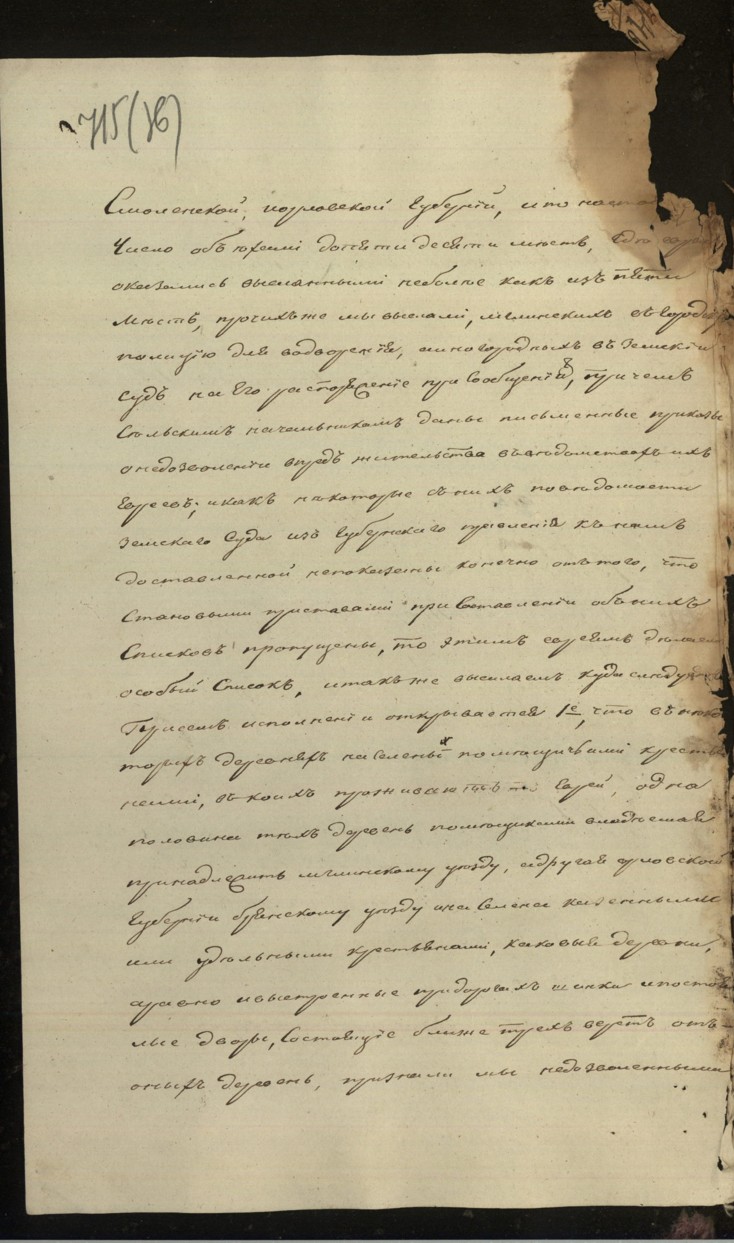 715(36)
Смоленской, иорловской Губерній, ито
Число объѣхали допятидесяти мѣстъ,
оказались высланными неболѣе какъ изъ пяти
Мѣстъ, прочихъже мы выслали, мглинскихъ въ
полицію для водворенія, аиногородныхъ въ Земскій
Судъ на Его распоряженіе при Сообщеніи, причемъ
Сельскимъ начальникамъ даны письменные приказы
онедозволеніи впредь жительства въ ихъ
Евреевъ; икакъ нѣкоторые съ нихъ повѣдомости
Земскаго Суда изъ Губернскаго правленія къ намъ
доставленной непоказаны конечно отътого, что
Становыми приставами при Составленіи объ нихъ
Списковъ пропущены, то этимъ евреямъ дѣлаемъ
особый Списокъ, итакъже высылаемъ куда
Присемъ исполненіи открывается 1е, что въ нѣко
торыхъ деревняхъ населенныхъ помѣщичьими кресть
янами, въ коихъ проживаютъ Евреи, одна
половина тѣхъ деревень помѣщиками владѣемая
принадлежитъ мглинскому уѣзду, адругая орловской
Губерніи брянскому уѣзду инаселена казенными
или удѣльными крестьянами, каковыя деревни,
аравно ивыстроенные придорогахъ шинки ипостоя
лые дворы, Состоящіе ближе трехъ верстъ отъ
оныхъ деревень, признали мы недозволенными